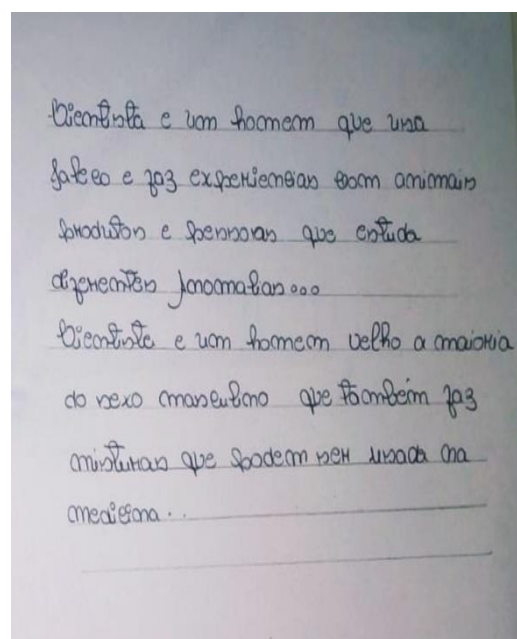 Cientista e um homem que usa
jaleco e faz experiencias com animais
produtos e pessoas que estuda
diferentes formulas...
Cientiste e um homem velho a maioria
do sexo masculino que também faz
misturas que podem ser usada na
medicina..